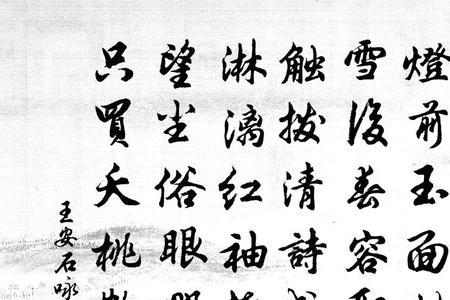 燈前玉面
雪後春容
觸撥清詩
淋漓紅袖
望塵俗眼
只買夭桃
王安石咏